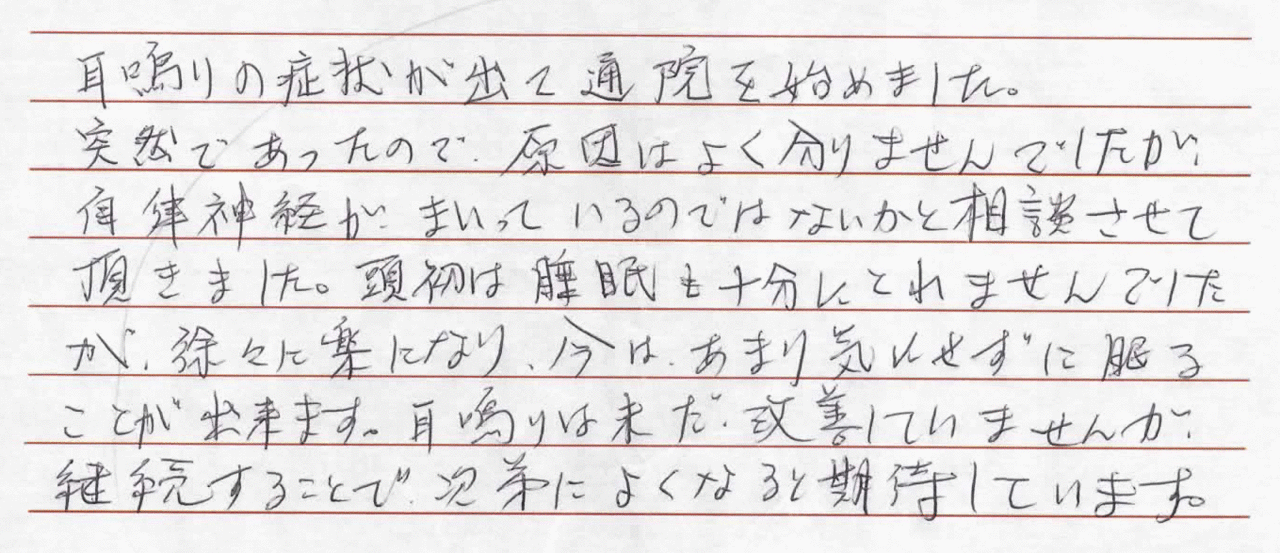 耳鳴りの症状が出て通院を始めました。
突然であったので、原因はよく分りませんでしたが、
自律神経がまいっているのではないかと相談させて
頂きました。頭初は睡眠も十分にとれませんでした
が、徐々に楽になり、今は、あまり気にせずに眠る
ことが出来ます。耳鳴りは未だ、改善していませんが、
継続することで、次第によくなると期待しています。